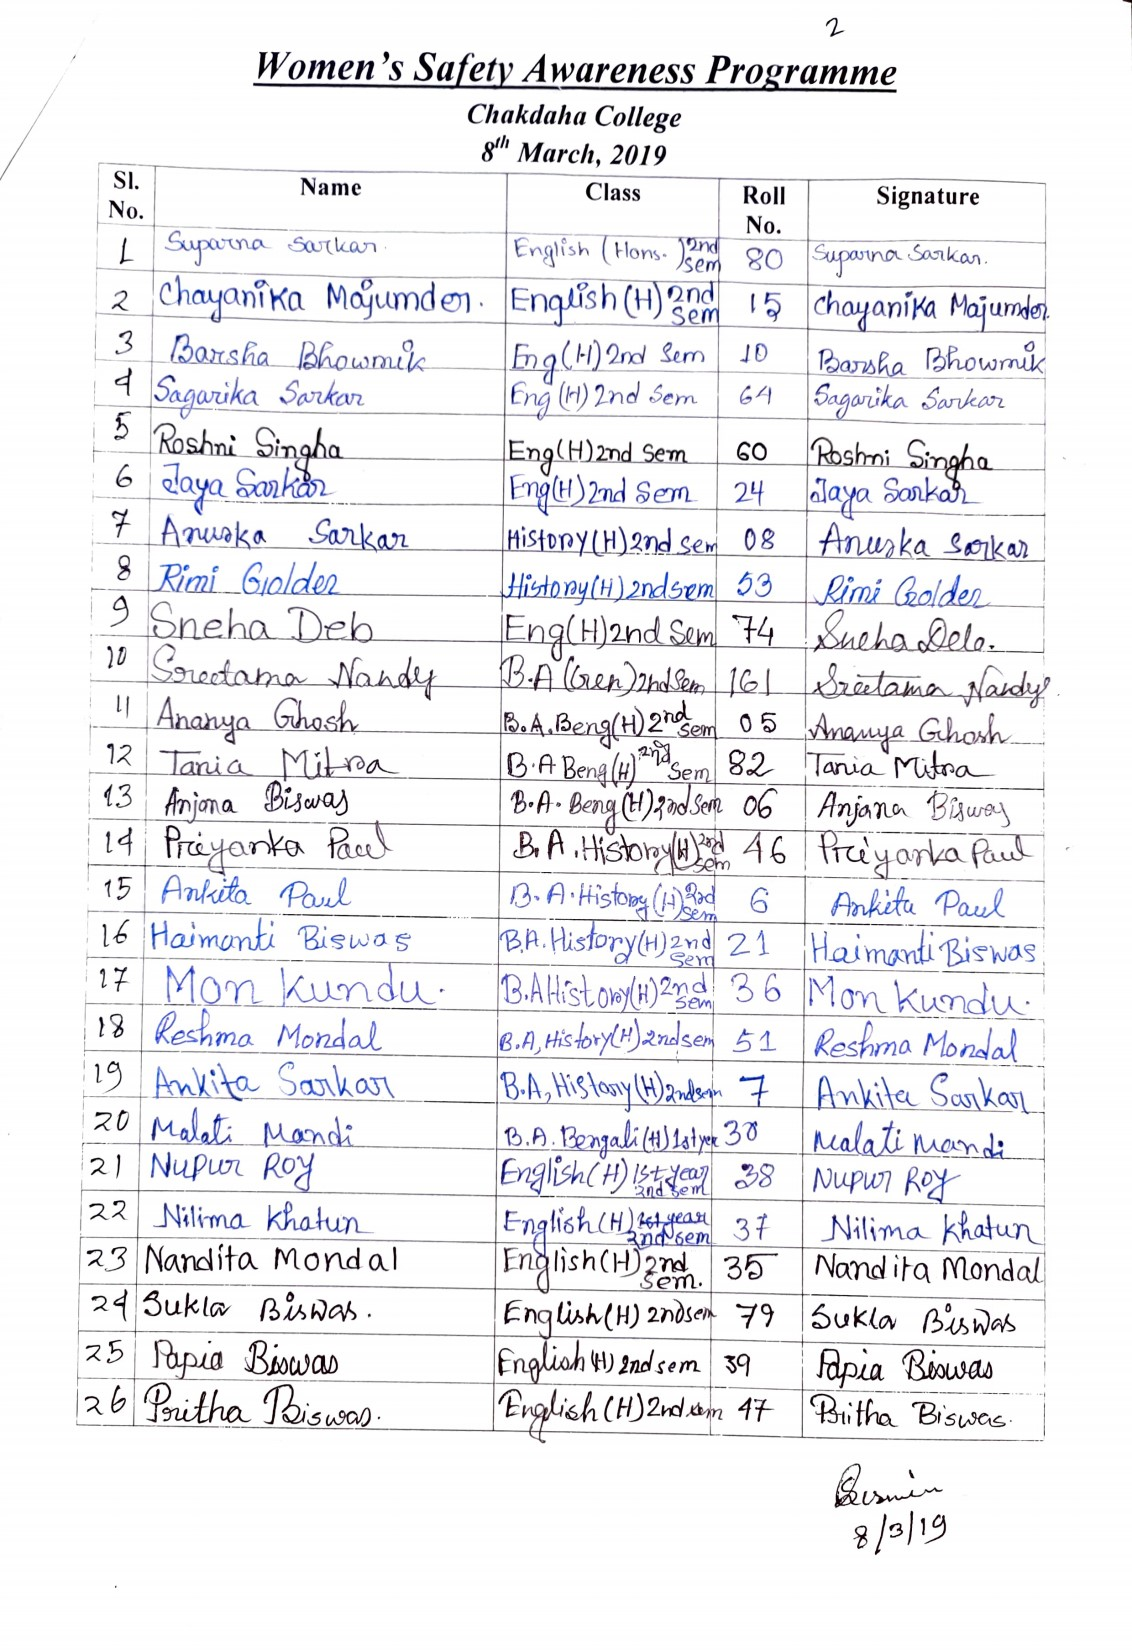 2
Women's Safety Awareness Programme
Chakdaha College
8th March, 2019
Sl. No. Name Class Roll No. Signature
1 Suparna Sarkar. English (Hons.) 2nd sem 80 Suparna Sarkar.
2 Chayanika Majumder. English (H) 2nd Sem 15 Chayanika Majumder.
3 Barsha Bhowmik Eng (H) 2nd Sem 10 Barsha Bhowmik
4 Sagarika Sarkar Eng (H) 2nd Sem 64 Sagarika Sarkar
5 Roshni Singha Eng(H) 2nd Sem 60 Roshni Singha
6 Jaya Sarkar Eng(H) 2nd Sem 24 Jaya Sarkar
7 Anuska Sarkar History(H) 2nd Sem 08 Anuska Sarkar
8 Rimi Golder History(H) 2nd sem 53 Rimi Golder
9 Sneha Deb Eng(H) 2nd Sem 74 Sneha Deb.
10 Sreetama Nandy B.A (Gen) 2nd Sem 161 Sreetama Nandy
11 Ananya Ghosh B.A. Beng(H) 2nd Sem 05 Ananya Ghosh
12 Tania Mitra B.A Beng(H) 2nd Sem 82 Tania Mitra
13 Anjana Biswas B.A. Beng(H) 2nd Sem 06 Anjana Biswas
14 Priyanka Paul B.A. History(H) 2nd sem 46 Priyanka Paul
15 Ankita Paul B.A. History(H) 2nd sem 6 Ankita Paul
16 Haimanti Biswas B.A. History(H) 2nd sem 21 Haimanti Biswas
17 Mon Kundu. B.A History(H) 2nd sem 36 Mon Kundu.
18 Reshma Mondal B.A, History(H) 2nd sem 51 Reshma Mondal
19 Ankita Sarkar B.A, History(H) 2nd sem 7 Ankita Sarkar
20 Malati Mandi B.A. Bengali (H) 1st yer 30 Malati Mandi
21 Nupur Roy English(H) 1st year 2nd sem 38 Nupur Roy
22 Nilima Khatun English(H) 1st year 2nd sem 37 Nilima Khatun
23 Nandita Mondal English(H) 2nd Sem. 35 Nandita Mondal
24 Sukla Biswas. English(H) 2nd sem 79 Sukla Biswas
25 Papia Biswas English (H) 2nd sem 39 Papia Biswas
26 Pritha Biswas. English (H) 2nd sem 47 Pritha Biswas.
8/3/19